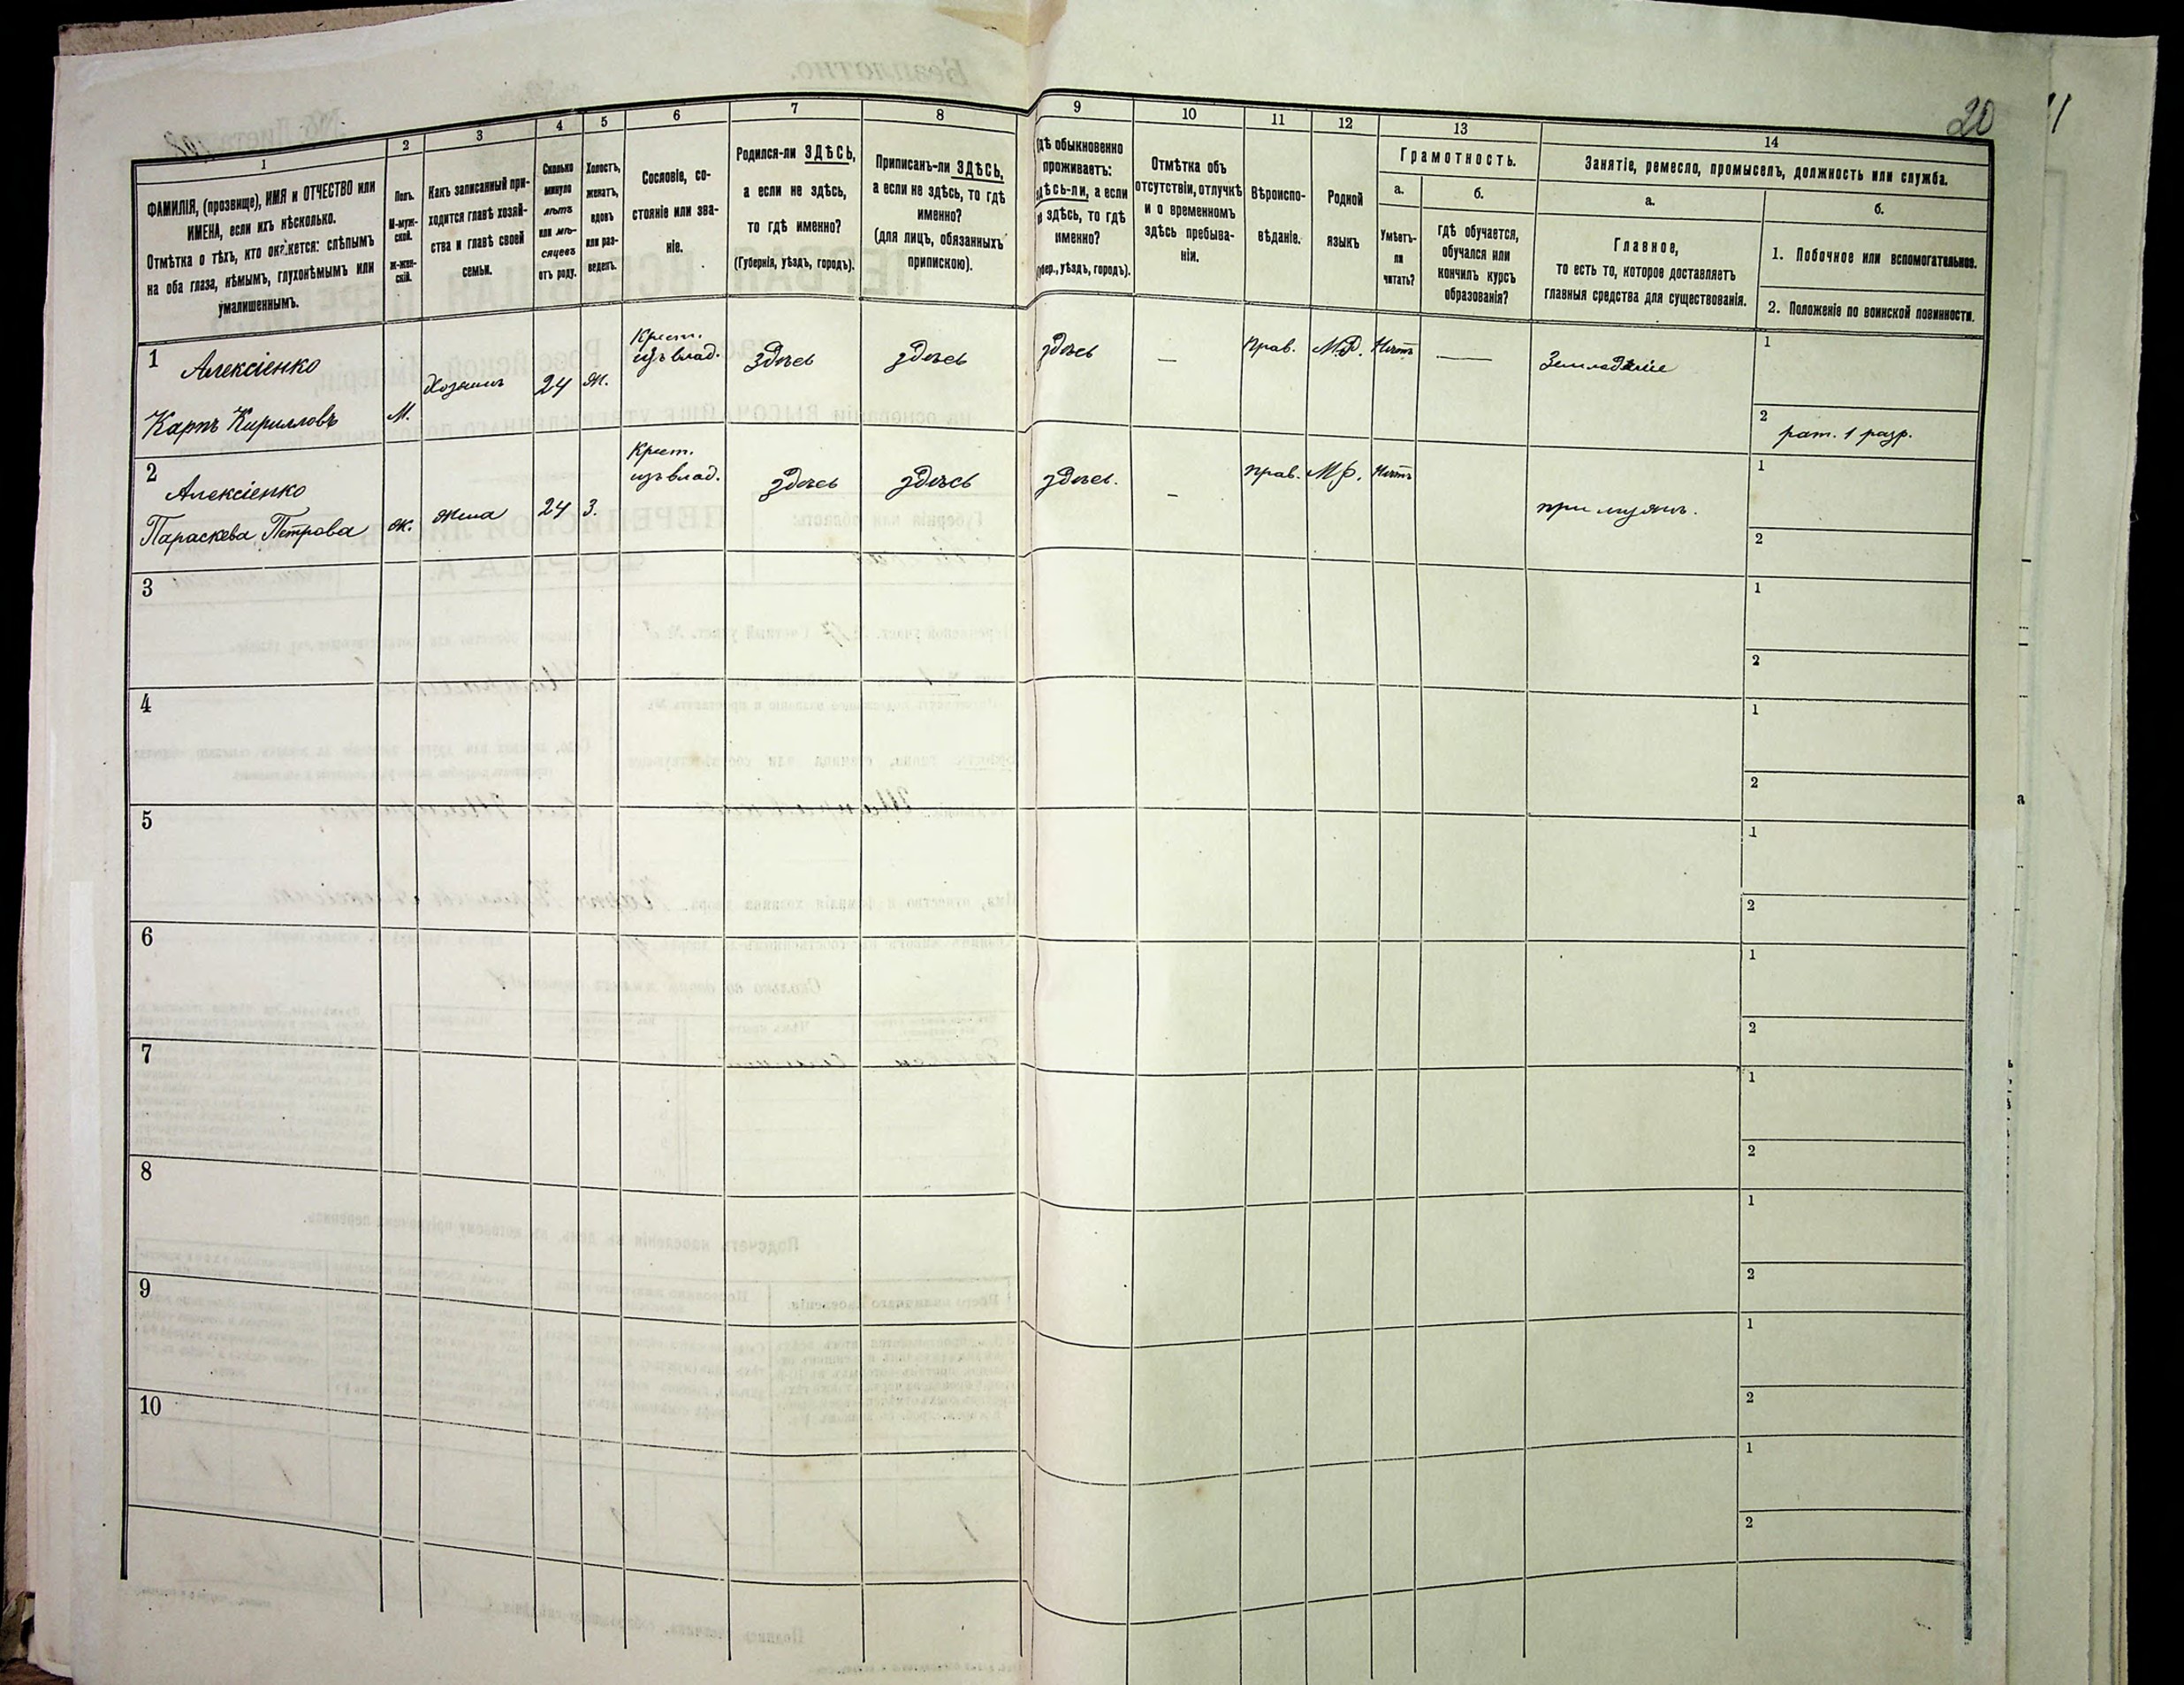 20
1
ФАМИЛІЯ, (прозвище), ИМЯ и ОТЧЕСТВО или
ИМЕНА, если ихъ нѣсколько.
Отмѣтка о тѣхъ, кто окажется: слѣпымъ
на оба глаза, нѣмымъ, глухонѣмымъ или
умалишеннымъ.
2
Полъ.
М-муж-
ской.
Ж-жен-
скій.
3
Какъ записанный при-
ходится главѣ хозяй-
ства и главѣ своей
семьи.
4
Сколько
минуло
лѣтъ
или мѣ-
сяцевъ
отъ роду.
5
Холостъ,
женатъ,
вдовъ
или раз-
веденъ.
6
Сословіе, со-
стояніе или зва-
ніе.
7
Родился-ли ЗДѢСЬ,
а если не здѣсь,
то гдѣ именно?
(Губернія, уѣздъ, городъ).
8
Приписанъ-ли ЗДѢСЬ,
а если не здѣсь, то гдѣ
именно?
(для лицъ, обязанныхъ
припискою).
9
гдѣ обыкновенно
проживаетъ:
здѣсь-ли, а если
не здѣсь, то гдѣ
именно?
(Губер., уѣздъ, городъ).
10
Отмѣтка объ
отсутствіи, отлучкѣ
и о временномъ
здѣсь пребыва-
ніи.
11
Вѣроиспо-
вѣданіе.
12
Родной
языкъ
13
Грамотность.
а.
Умѣетъ-
ли
читать?
б.
гдѣ обучается,
обучался или
кончилъ курсъ
образованія?
14
Занятіе, ремесло, промыселъ, должность или служба.
а.
Главное,
то есть то, которое доставляетъ
главныя средства для существованія.
б.
1. Побочное или вспомогательное.
2. Положеніе по воинской повинности.
1
Алексіенко
Карпъ Кирилловъ
М.
Хозяинъ
24
ж.
Крест.
изъ влад.
здѣсь
здѣсь
здѣсь
—
Прав.
М.Р.
Нѣтъ
—
Земледѣліе
1
2
рат. 1 разр.
2
Алексіенко
Параскева Петрова
ж.
жена
24
з.
Крест.
изъ влад.
здѣсь
здѣсь
здѣсь.
—
прав.
М.Р.
Нѣтъ
при мужѣ.
1
2
3
1
2
4
1
2
5
1
2
6
1
2
7
1
2
8
1
2
9
1
2
10
1
2